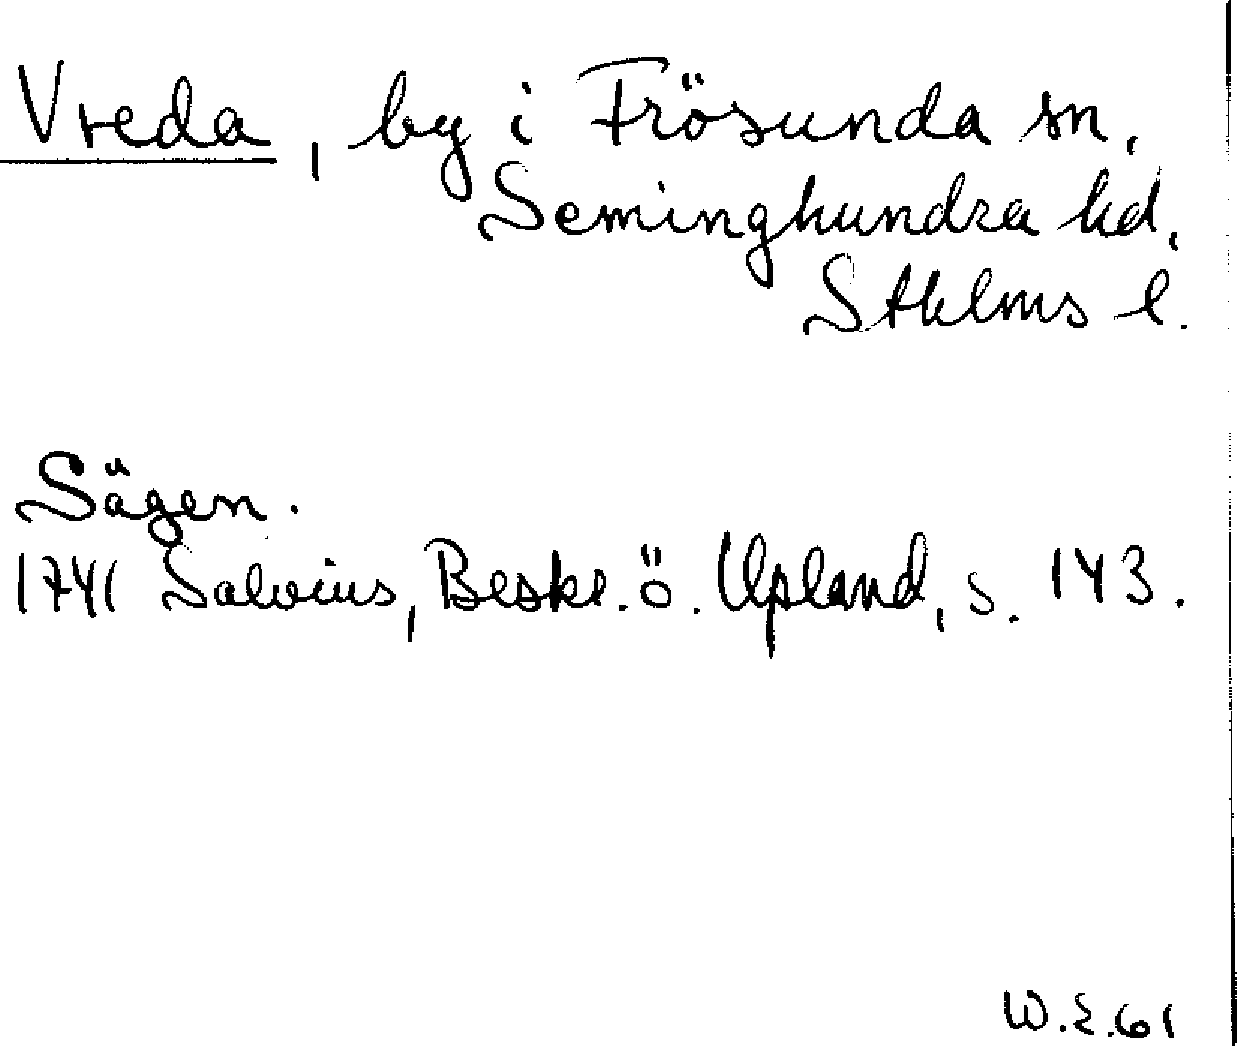 Vreda, by i Frösunda sn,
Seminghundra hd,
Sthlms l.
Sägen.
1741 Salvius, Beskr. ö. Upland, s. 143.
W.E.61